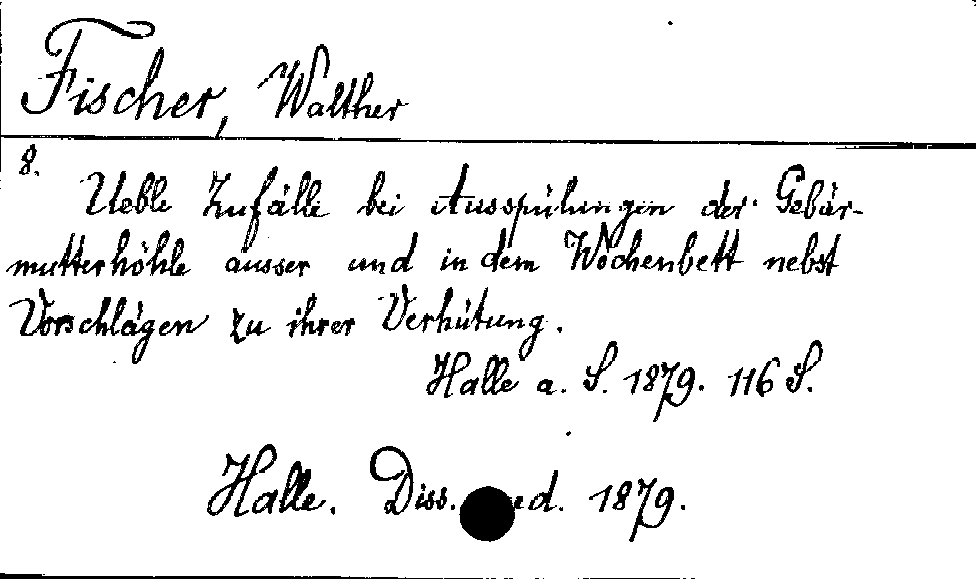 Fischer, Walther
8.
Ueble Zufälle bei Ausspülungen der Gebär-
mutterhöhle ausser und in dem Wochenbett nebst
Vorschlägen zu ihrer Verhütung.
Halle a. S. 1879. 116 S.
Halle. Diss. ed. 1879.